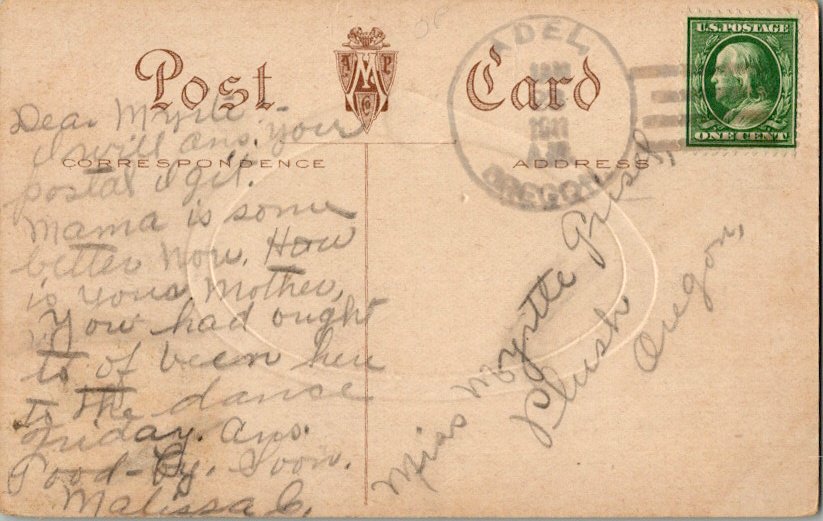 Post Card
AMP Co
ADEL,
1911
A.M.
OREGON.
U.S. POSTAGE
ONE CENT
CORRESPONDENCE
ADDRESS
Dear Myrtle -
I will ans. your
postal I git.
Mama is some
better now. How
is your Mother,
You had ought
to of been here
to the dance
Friday. Ans.
Good-by. Soon.
Malissa C.
Miss Myrtle
Plush
Oregon,